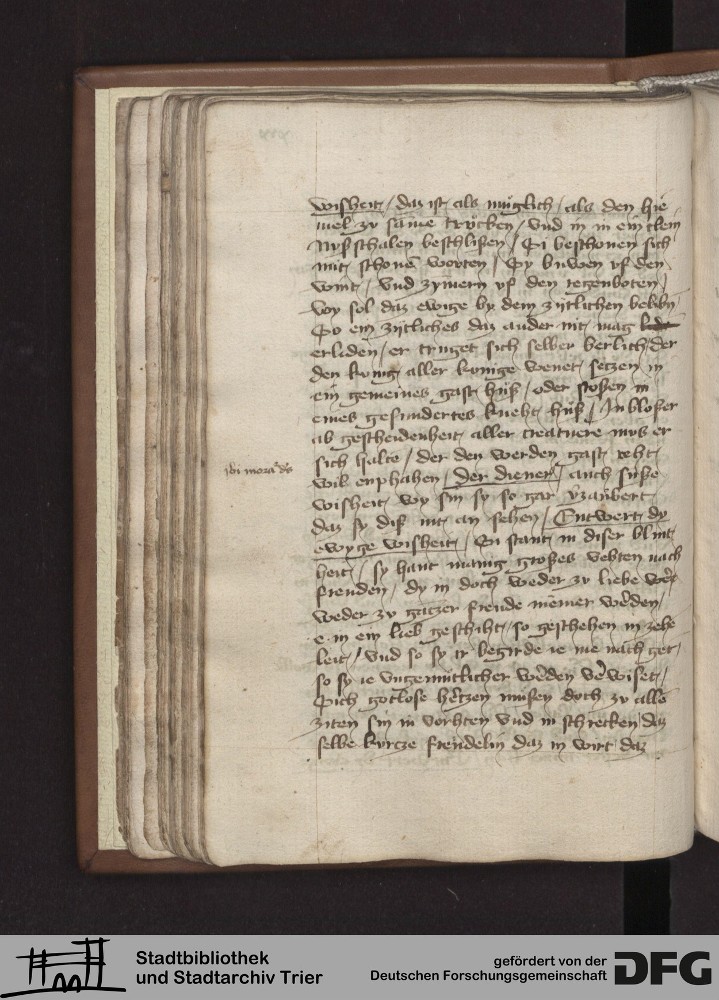 wisheit / daz ist als muͤglich / als den hie
mel zv same trvcken / vnd in in ein clein
nvsschalen beschlißen / Si beschonen sich
mit schonē worten / Sy buwen vf den
wint / vnd zymern vf den regenboten /
Woy sol daz ewige by dem zytlichen belibn
So ein zytliches daz ander nit mag
erliden / er truget sich selber berlich der
den konig aller konige wenet setzen in
ein gemeines gast huß / oder stoßen in
eines gesundertes kneht huß / In bloßer
ab gescheidenheit aller creatuere mvs er
sich halte / der den werden gast reht
wil enphahen / Der diener / auch suße
wisheit woy sin sy so gar vzaubert
daz sy diß nit an sehen / Entwert dy
ewyge wisheit / Sy stant in diser blint
heit / sy hant manig großes vehten nach
freuden / dy in doch weder zv liebe wer
weder zv gatzer freude niemer werden /
e in ein lieb geschiht / so geschehen in zehe
leit / vnd so sy ir begirde ie me nach get /
so sy ie vngemutlicher werden verwiset /
Sich gotlose hertzen musen doch zv alle
ziten sin in vorhten vnd in schrecken / daz
selbe kurcze freudelin daz in wirt daz
Stadtbibliothek
und Stadtarchiv Trier
gefördert von der
Deutschen Forschungsgemeinschaft
DFG